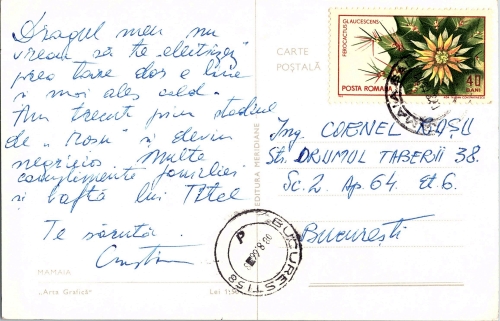 Dragul meu nu
vreau să te
prea tare dar e bine
și mai ales cald.
Am trecut prin stadiul
de "Rosu" și devin
negricios. Multe
complimente familiei
și baftă lui Titel
Te sărută
MAMAIA
„Arta Grafică"
Lei
EDITURA MERIDIANE
CARTE
POȘTALĂ
FEROCACTUS GLAUCESCENS
POSTA ROMANA
40
BANI
MAMAIA
Ing. CORNEL ROȘU
Str. DRUMUL TABERII 38.
Sc. 2 Ap. 64. Et 6.
București
BUCUREȘTI 58